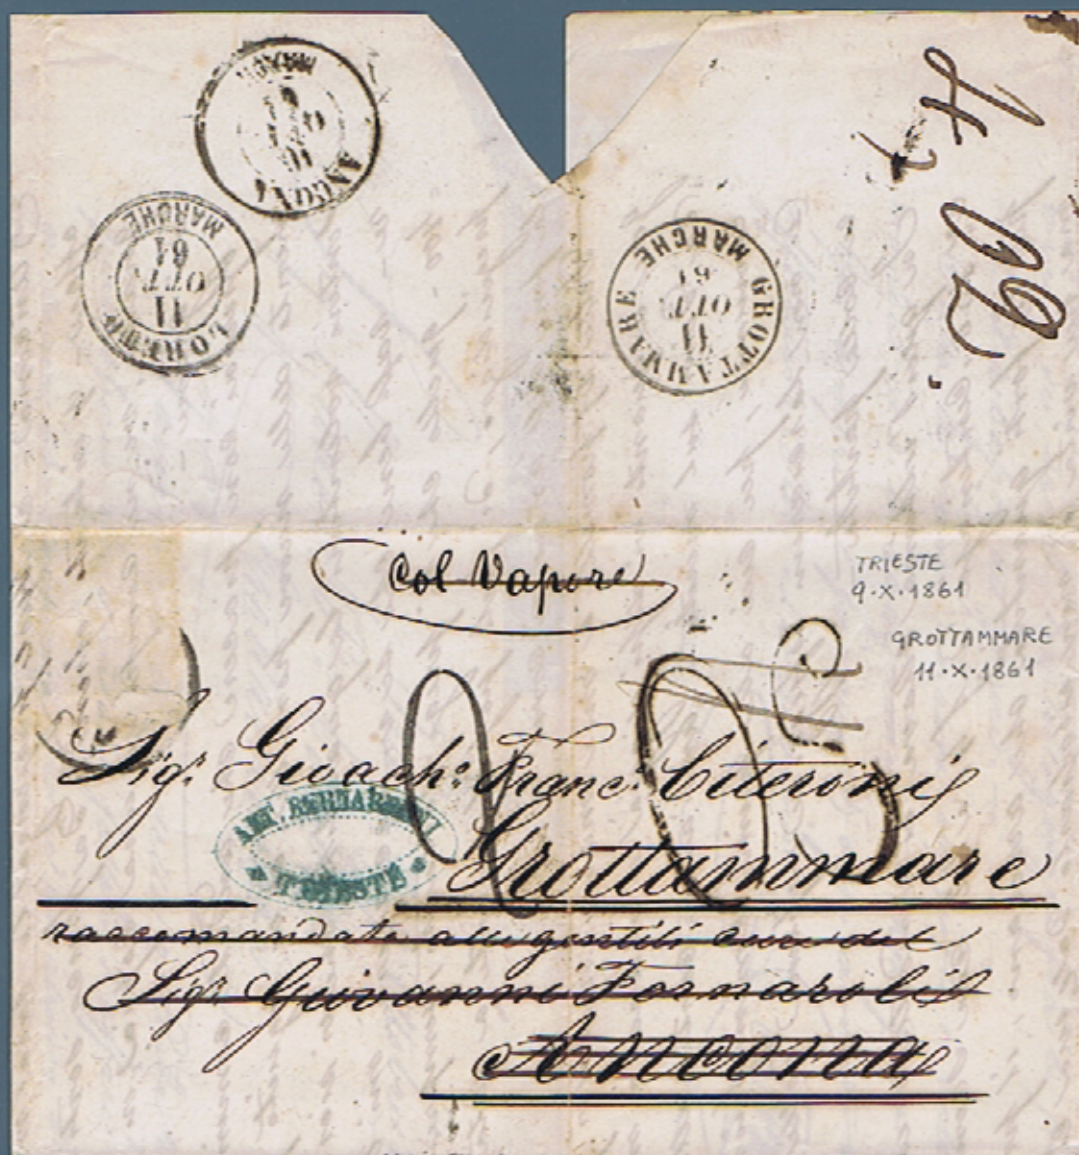 ANCONA
MARCHE
LORETO
11
OTT
61
MARCHE
GROTTAMMARE
11
OTT
61
MARCHE
Col Vapore
TRIESTE
9·X·1861
GROTTAMMARE
11·X·1861
Sigr Gioacho Franc. Citeroni
ANT. BERNARDINI
TRIESTE
Grottammare
raccomandata alle gentili cure del
Sigr Giovanni Fornaroli
Ancona